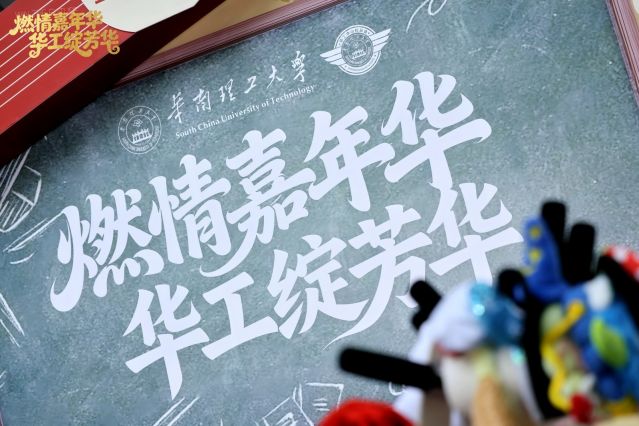 燃情嘉年华
华工绽芳华
華南理工大學
South China University of Technology
燃情嘉年华
华工绽芳华